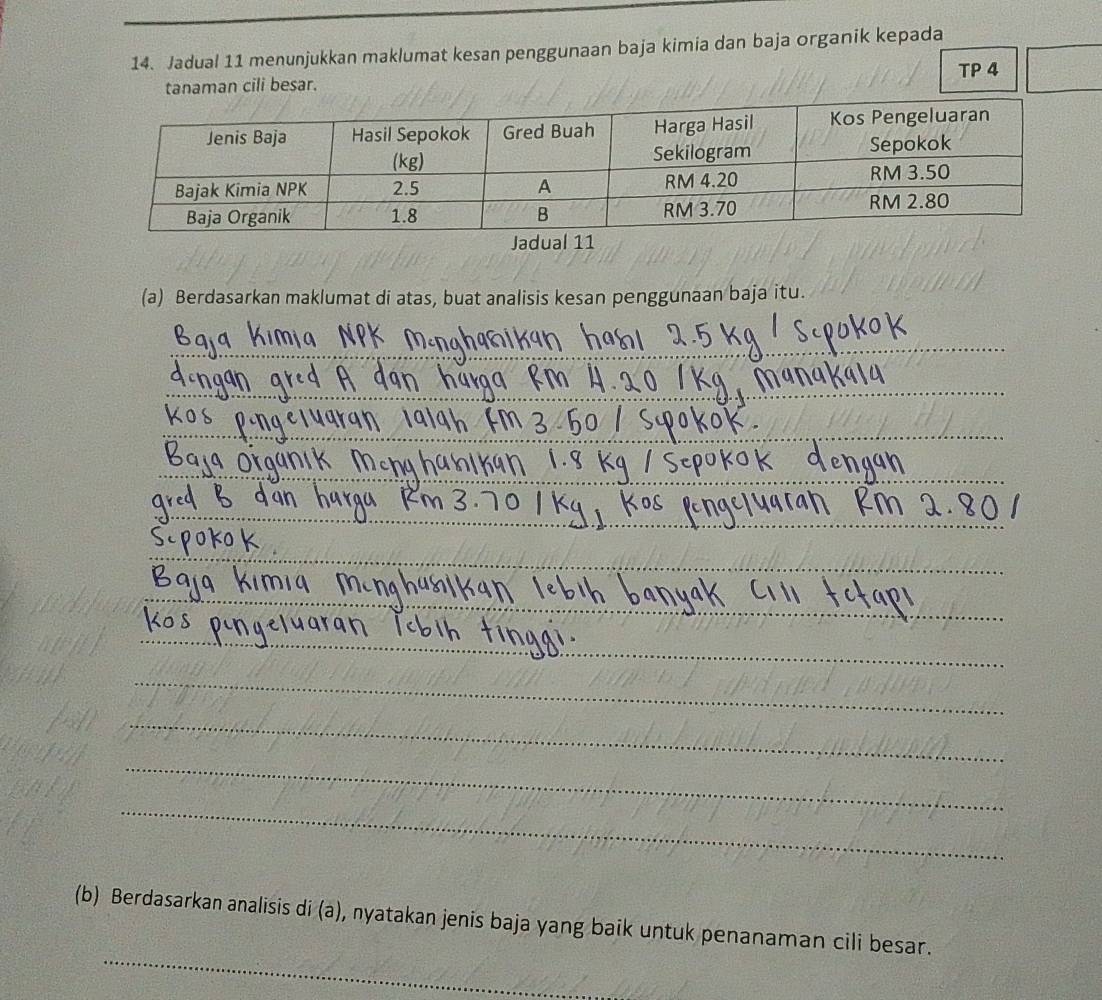 14. Jadual 11 menunjukkan maklumat kesan penggunaan baja kimia dan baja organik kepada
tanaman cili besar.
TP 4
Jenis Baja | Hasil Sepokok (kg) | Gred Buah | Harga Hasil Sekilogram | Kos Pengeluaran Sepokok
Bajak Kimia NPK | 2.5 | A | RM 4.20 | RM 3.50
Baja Organik | 1.8 | B | RM 3.70 | RM 2.80
Jadual 11
(a) Berdasarkan maklumat di atas, buat analisis kesan penggunaan baja itu.
Baja kimia NPK menghasilkan hasil 2.5 kg / sepokok
dengan gred A dan harga Rm 4.20 / kg, manakala
kos pengeluaran ialah rm 3.50 / sepokok.
Baja organik menghasilkan 1.8 kg / sepokok dengan
gred B dan harga Rm 3.70 / kg, kos pengeluaran Rm 2.80 /
sepokok.
Baja kimia menghasilkan lebih banyak cili tetapi
kos pengeluaran lebih tinggi.
(b) Berdasarkan analisis di (a), nyatakan jenis baja yang baik untuk penanaman cili besar.